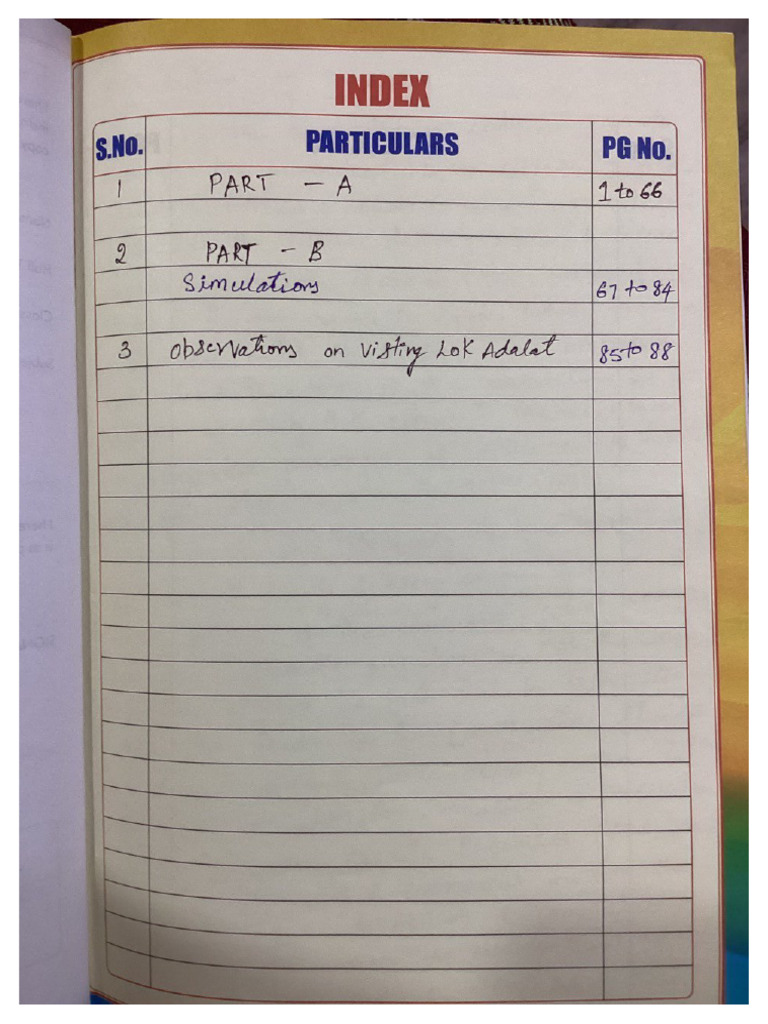 INDEX
S.No. PARTICULARS PG No.
1 PART - A 1 to 66
2 PART - B
Simulations 67 to 84
3 Observations on Visting Lok Adalat 85 to 88